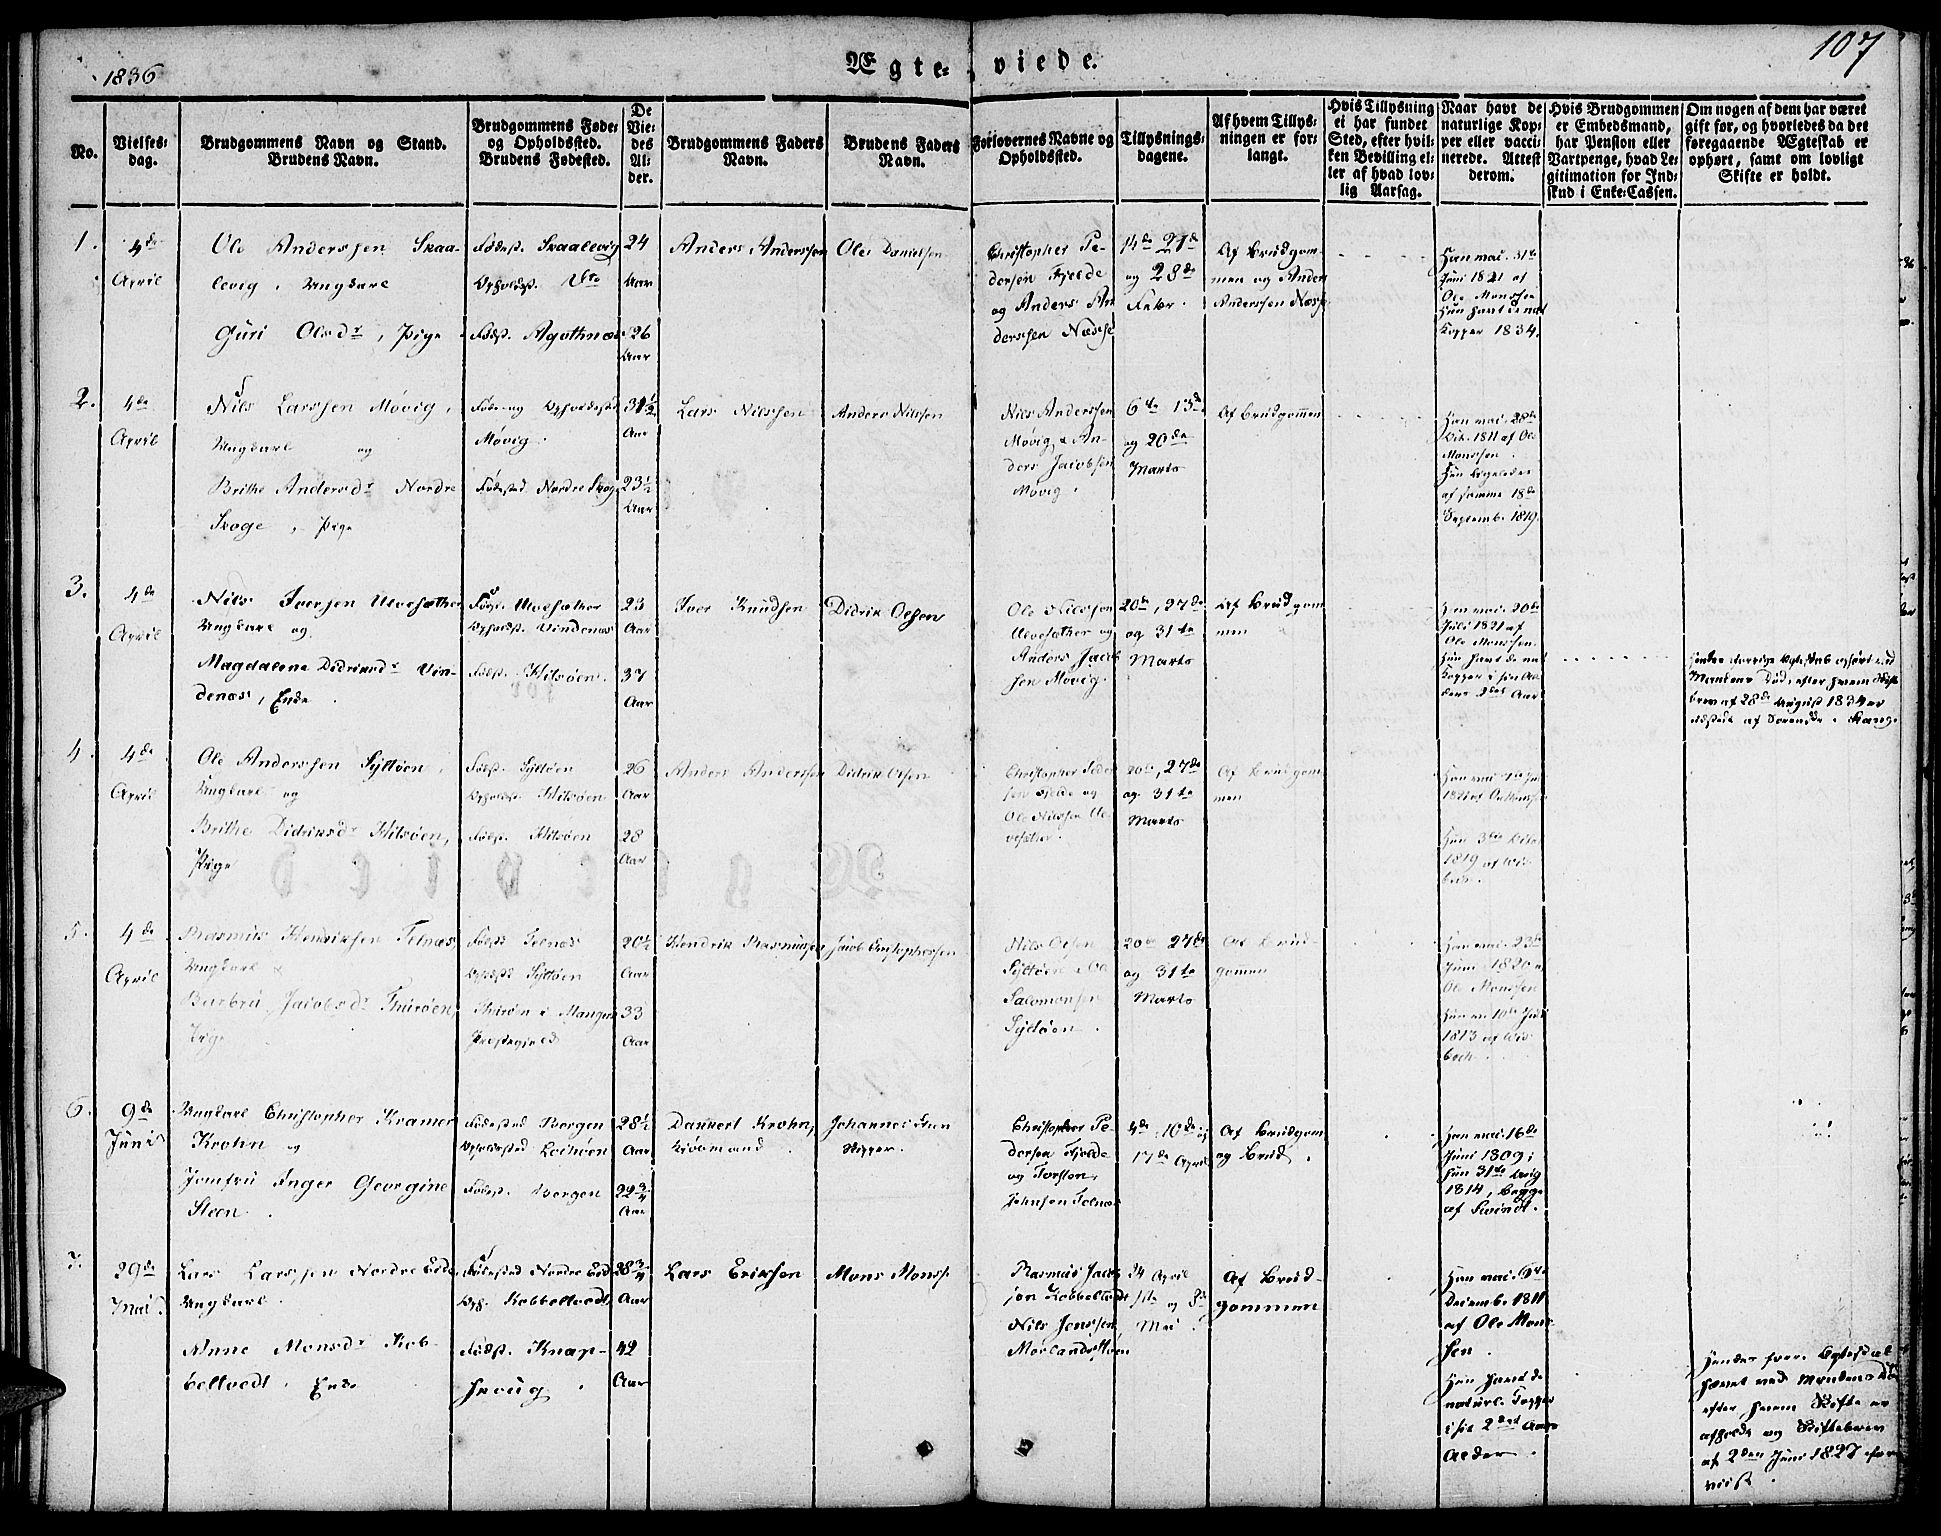 1836
Ægteviede.
107
No.
Vielsesdag.
Brudgommens Navn og Stand.
Brudens Navn.
Brudgommens Føde-
og Opholdsted.
Brudens Fødested.
De
Vie-
des
Al-
der.
Brudgommens Faders
Navn.
Brudens Faders
Navn.
Forlovernes Navne og
Opholdssted.
Tillysnings-
dagene.
Af hvem Tillys-
ningen er for-
langt.
Hvis Tillysning
ei har fundet
Sted, efter hvil-
ken Bevilling el-
ler af hvad lov-
lig Aarsag.
Naar havt de
naturlige Kop-
per eller vacci-
nerede. Attest
derom.
Hvis Brudgommen
er Embedsmand,
har Pension eller
Vartpenge, hvad Le-
gitimation for Ind-
skud i Enke-Cassen.
Om nogen af dem har været
gift før, og hvorledes da det
foregaaende Ægteskab er
ophørt, samt om lovligt
Skifte er holdt.
1.
4de
April
Ole Anderssen Skaa-
levig, Ungkarl
Guri Olsdr, Pige
Fødest. Skaalevig
Opholdst. dto
Fødst. Agothnæs
24
Aar
26
Aar
Anders Anderssen
Ole Danielsen
Christopher Pe-
dersen Fjelde
og Anders An
derssen Nædse
14de 21de
og 28de
Febr.
Af Brudgom-
men og Anders
Anderssen
Han
Juni 1821 af
Ole Monssen
Hun havt de nat
Kopper 1834.
2.
4de
April
Nils Larssen Møvig,
Ungkarl og
Brithe Andersdr Nordre
Skoge, Pige
Føde og Opholdsted
Møvig.
Fødested Nordre Skoge
31½
Aar
23½
Aar
Lars Nilssen
Anders Nilssen
Nils Anderssen
Møvig & An-
ders Jacobsen
Møvig.
6te 13de
og 20de
Marts
Af Brudgommen
1811 af Ole
Monssen.
Hun ligeledes
af samme 18de
Septemb. 1819.
3.
4de
April
Nils Iversen Ulvesæther
Ungkarl og
Magdalene Didriksdr Vin-
denæs, Enke.
Fødst. Ulvesæther
Opholdst. Vindenæs
Fødst. Hilsøen.
23
Aar
37
Aar
Iver Knudsen
Didrik Olssen
Ole Nilssen
Ulvesæther og
Anders Jacob
sen Møvig.
20de, 27de
og 31te
Marts
Af Brudgom
men
20de
Juli 1821 af
Ole Monssen.
Hun havt de nat
Kopper i sin Al-
ders 2det Aar
Mandens Død, efter hvem Skifte
brev af 28de August 1834 er
udstedt af
4.
4de
April
Ole Anderssen Syltøen,
Ungkarl og
Brithe Didriksdr Hilsøen,
Pige
Fødst. Syltøen
Opholdst. Hilsøen
Fødst. Hilsøen
26
Aar
28
Aar
Anders Anderssen
Didrik Olsen
Christopher Peder
sen Fjelde og
Ole Nilssen Ul-
vesæther.
20de, 27de
og 31te
Marts
Af Brudgom
men
1821 af
Hun 3de
1819 af Wis-
bech.
5.
4de
April
Rasmus Hendriksen Telnæs,
Ungkarl &
Barbru Jacobsdr Turøen,
Pige
Fødst. Telnæs
Opholdst. Syltøen
Turøen i Manger
Præstegjeld
20½
Aar
33
Aar
Hendrik Rasmussen
Jacob Christophersen
Nils Olsen
Syltøen & Ole
Salomonsen
Syltøen.
20de 27de
og 31te
Marts
Af Brud-
gommen
Han 23de
Juni 1820 af
Ole Monssen
Hun 10de
1813 af Wis
bech.
6.
9de
Juni
Ungkarl Christopher Kramer
Krohn og
Jomfru Inger Georgine
Steen.
Fødested Bergen
Opholdsted Leerøen
Fødst. Bergen
28½
Aar
22¾
Aar
Danckert Krohn,
Kjøbmand
Johannes Steen
Skipper.
Christopher Pe-
dersen Fjelde
og Torsten
Johnsen Telnæs
4de, 10de og
17de April
Af Brudgom
og Brud.
16de
Juni 1809;
Hun 31te
1814, begge
af
7.
29de
Mai.
Lars Larssen Nordre Eide,
Ungkarl.
Anne Monsdr Kob-
beltvedt. Enke
Fødested Nordre Eide
Oph. Kobbeltvedt
Fødst. Knap-
skoug.
28¾
Aar
42
Aar
Lars Eriksen
Mons Monss.
Rasmus Jacob
sen Kobbeltvedt
Nils Jonssen,
24 April
1te og 8de
Mai.
Af Brud-
gommen
Decemb. 1811
af Ole Mons-
sen.
Hun havt de
naturl. Kopper
i sit 2det Aars
Alder.
hævet ved Mandens Død
efter hvem Skifte er
afholdt og Skiftebrev
af 2den Juni 1827 fore
viist.